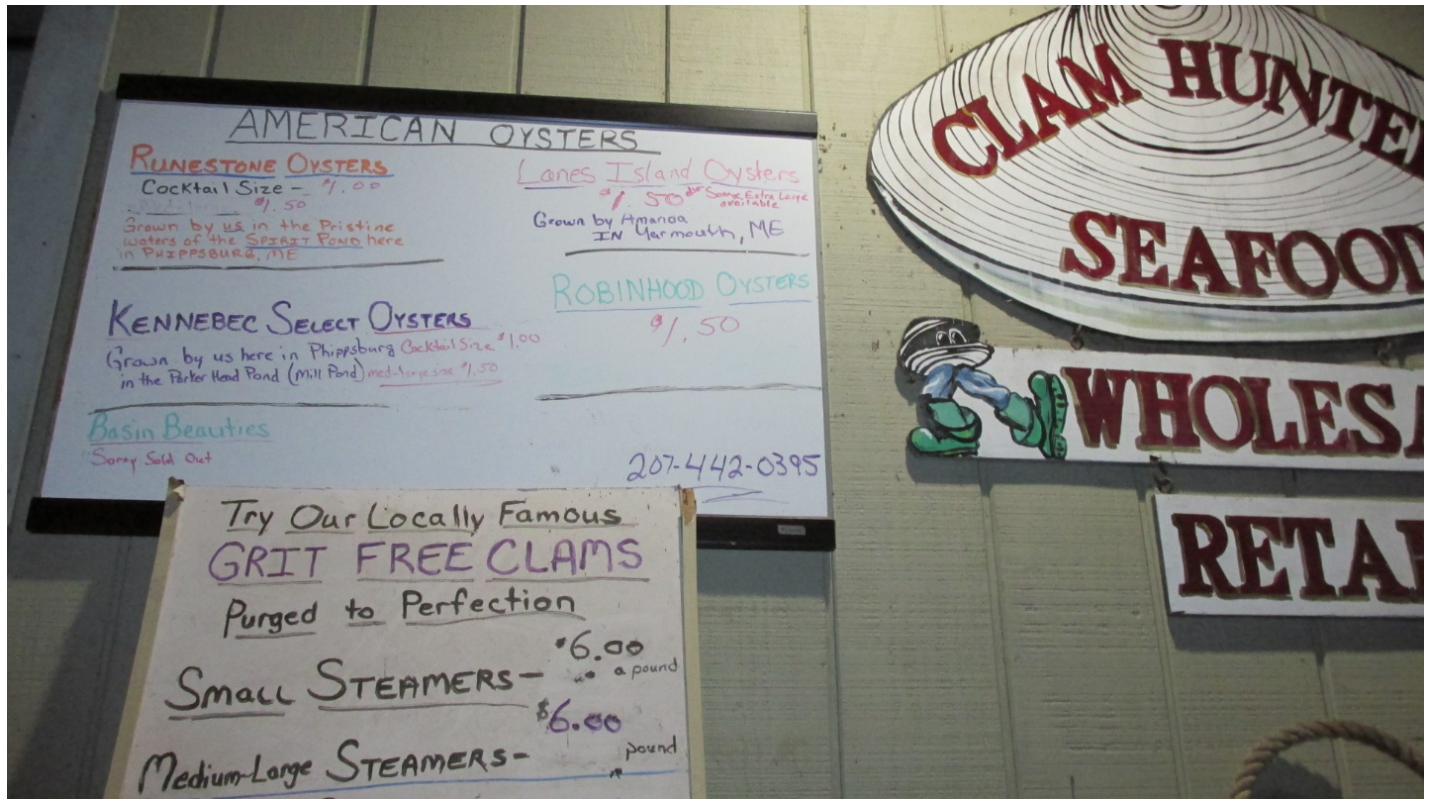 AMERICAN OYSTERS
RUNESTONE OYSTERS
Cocktail Size - $1.00
$1.50
Grown by us in the Pristine
waters of the SPIRIT POND here
in PHIPPSBURG, ME
KENNEBEC SELECT OYSTERS
Grown by us here in Phippsburg Cocktail Size $1.00
in the Parker Head Pond (Mill Pond) med-large size $1.50
Basin Beauties
Sorry Sold Out
Lanes Island Oysters
$1.50 Some Extra Large
available
Grown by Amanda
IN Yarmouth, ME
ROBINHOOD OYSTERS
$1.50
207-442-0395
Try Our Locally Famous
GRIT FREE CLAMS
Purged to Perfection
SMALL STEAMERS- $6.00
a pound
Medium-Large STEAMERS- $6.00
pound
CLAM HUNTE
SEAFOOD
WHOLESA
RETAI